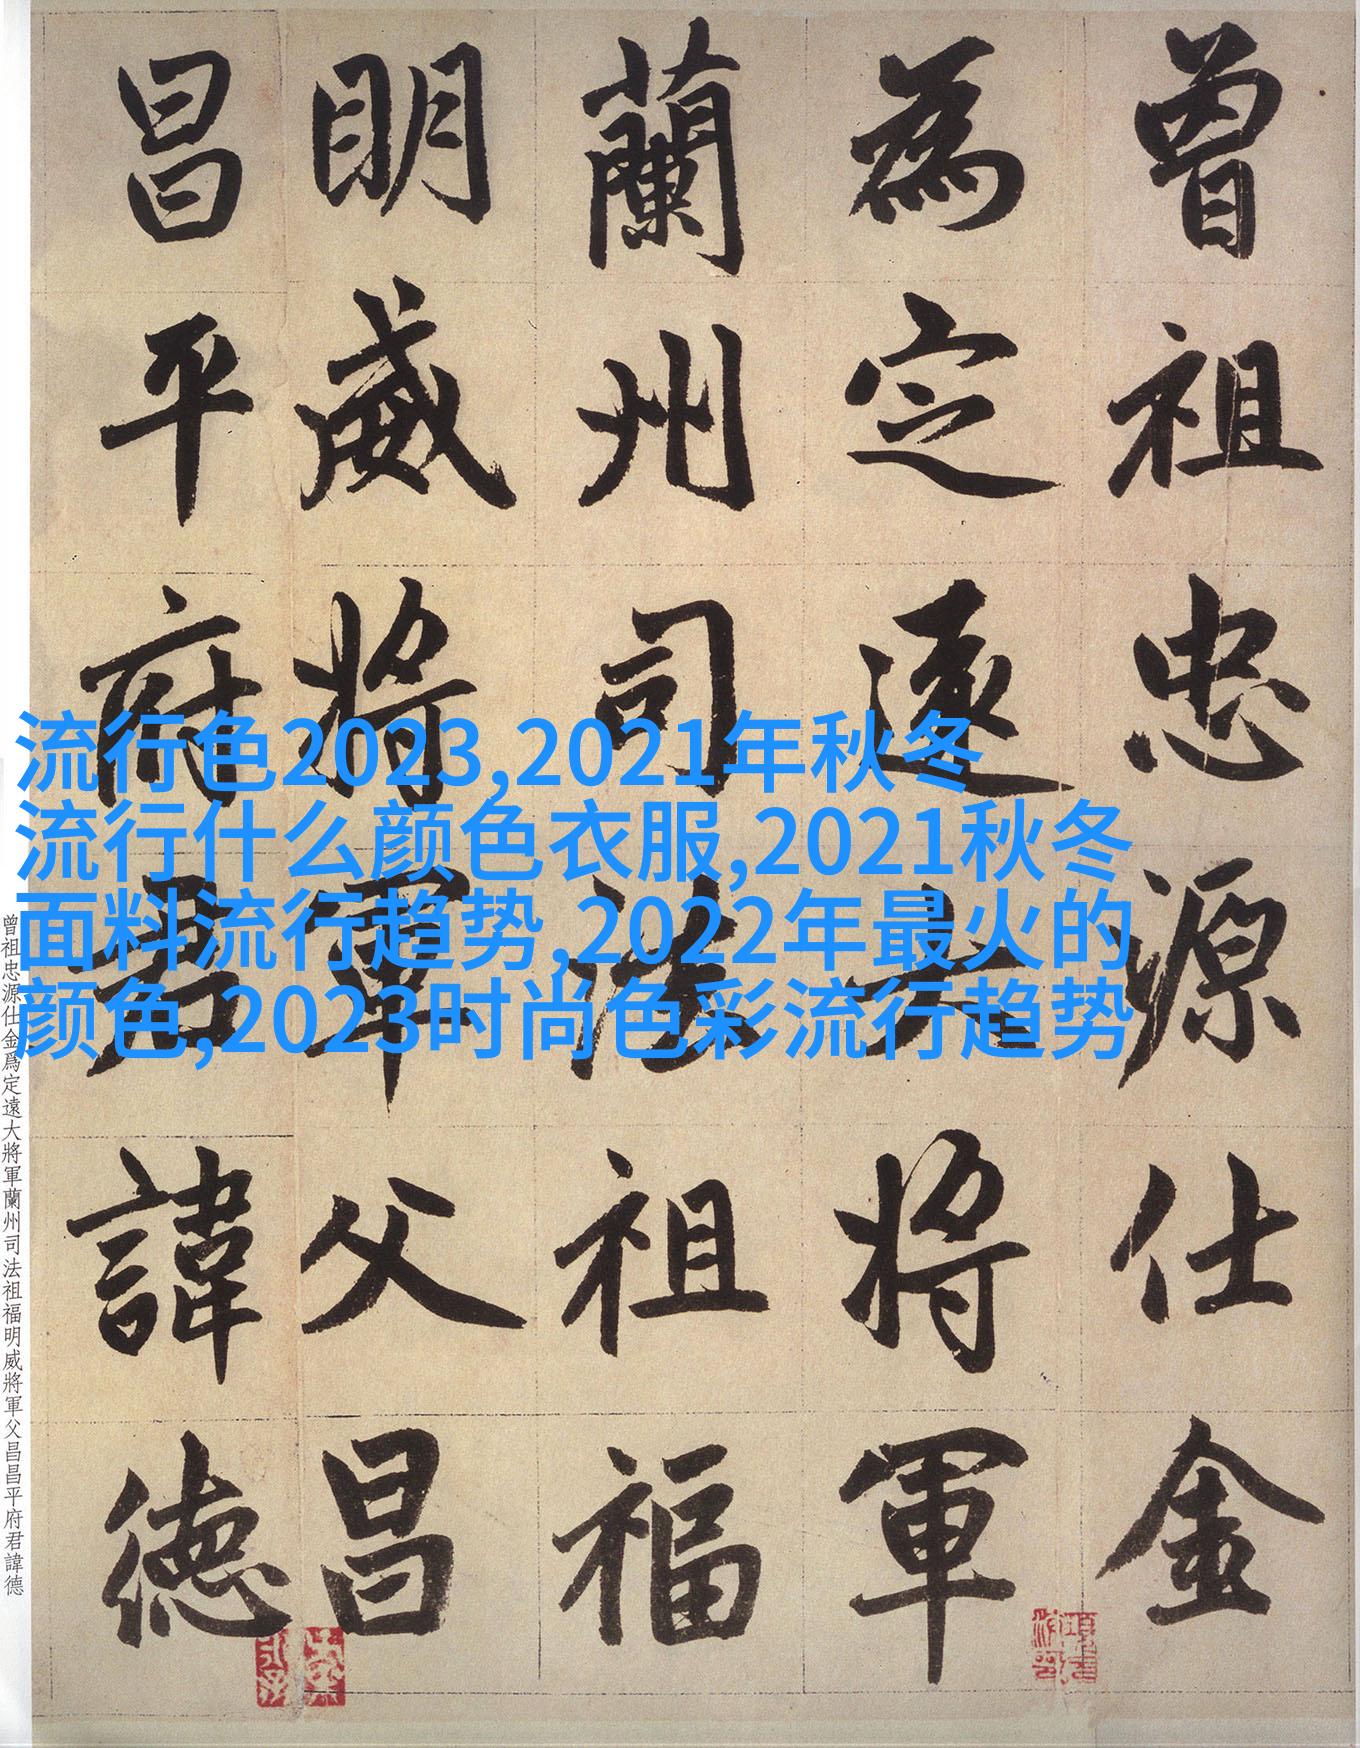 曾祖忠源仕金
為定遠大將軍
蘭州司法祖福
明威將軍父昌
昌平府君諱德
曾祖忠源仕金爲定遠大將軍蘭州司法祖福明威將軍父昌昌平府君諱德
流行色2023,2021年秋冬
流行什么颜色衣服,2021秋冬
面料流行趋势,2022年最火的
颜色,2023时尚色彩流行趋势